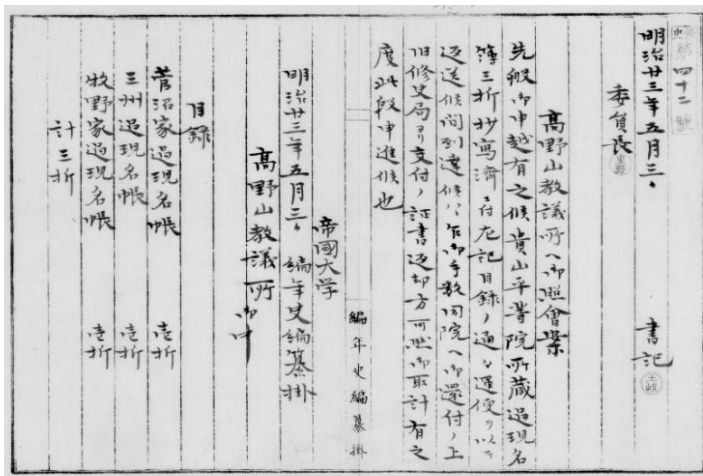 第四十二號
明治廿三年五月三日
委員長 重野 書記 土岐
高野山教議所ヘ御照會案
先般御申越有之候貴山平等院所蔵過現名
簿三折抄寫濟ニ付左記目録ノ通リ運便ヲ以テ
返送候間到達候ハヽ乍御手数同院ヘ御還付ノ上
旧修史局ヨリ交付ノ証書返却方可然御取計有之
度此段申進候也
帝國大学
明治廿三年五月三日 編年史編纂掛
高野山教議所 御中
目録
菅沼家過現名帳 壱折
三州過現名帳 壱折
牧野家過現名帳 壱折
計三折
編年史編纂掛